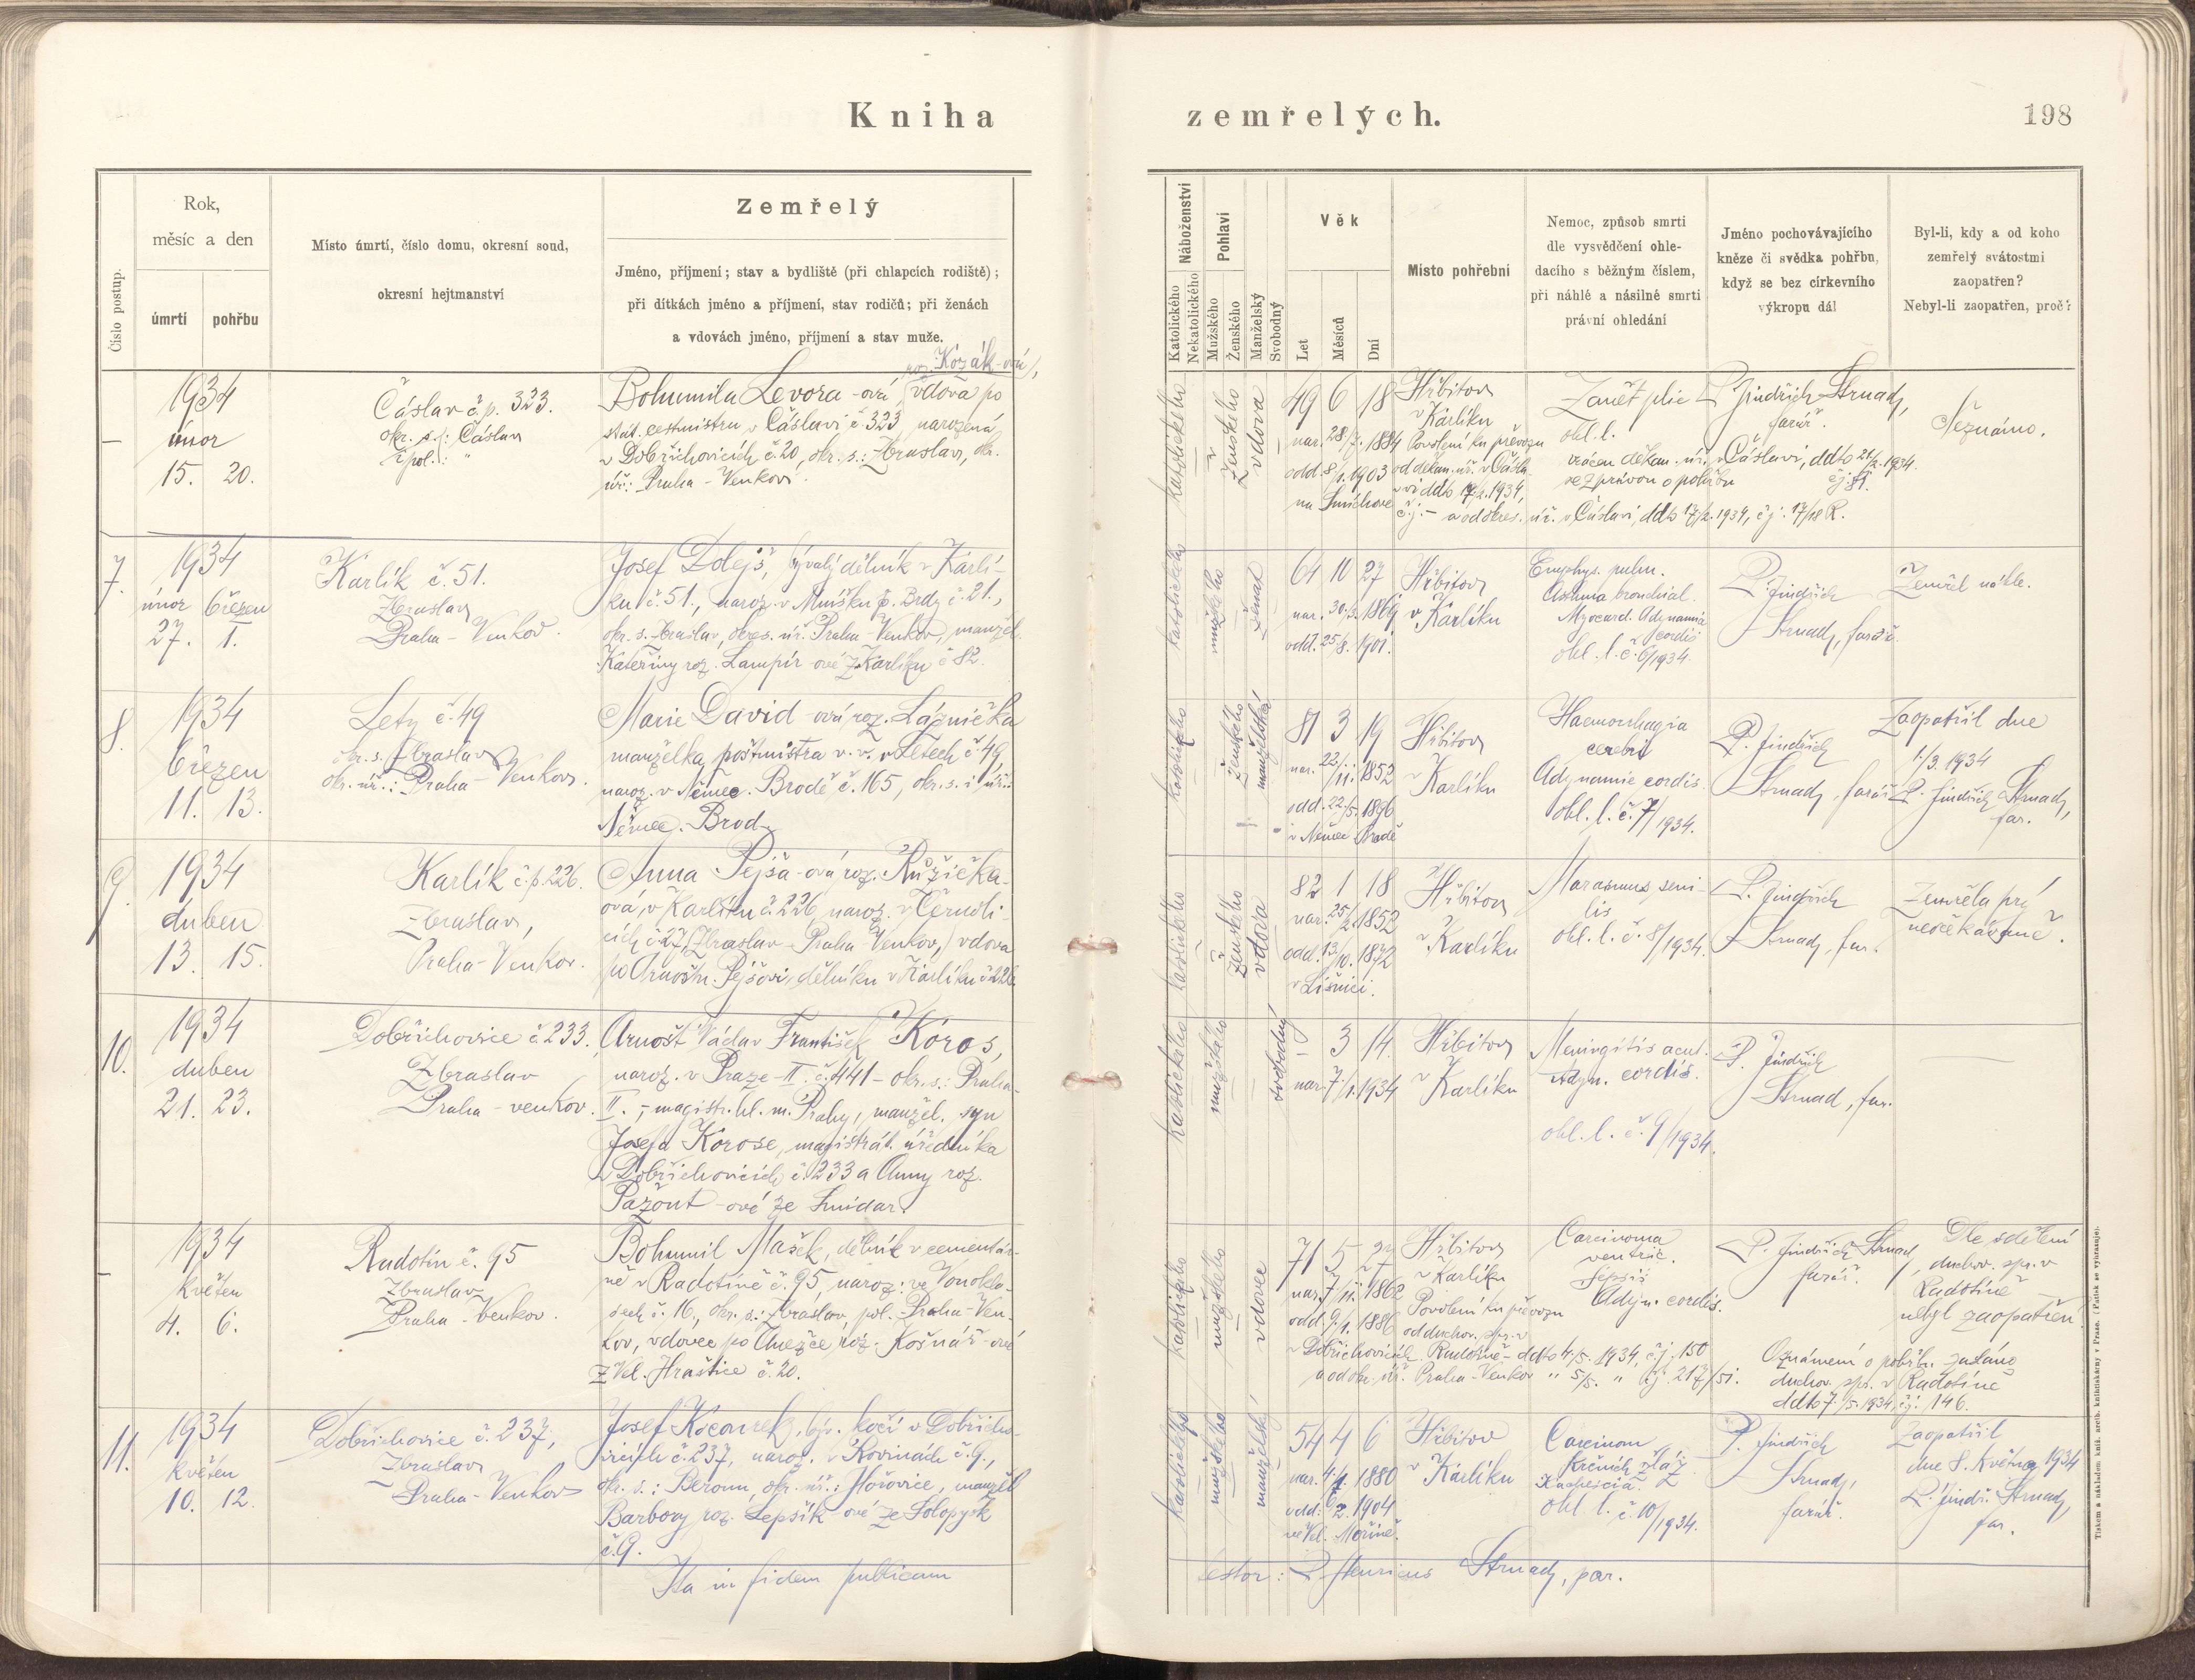 Kniha
zemřelých.
198
Číslo postup.
Rok,
měsíc a den
úmrtí
pohřbu
Místo úmrtí, číslo domu, okresní soud,
okresní hejtmanství
Zemřelý
Jméno, příjmení; stav a bydliště (při chlapcích rodiště);
při dítkách jméno a příjmení, stav rodičů; při ženách
a vdovách jméno, příjmení a stav muže.
Náboženství
Katolického
Nekatolického
Pohlaví
Mužského
Ženského
Manželský
Svobodný
Věk
Let
Měsíců
Dní
Místo pohřební
Nemoc, způsob smrti
dle vysvědčení ohle-
dacího s běžným číslem,
při náhlé a násilné smrti
právní ohledání
Jméno pochovávajícího
kněze či svědka pohřbu,
když se bez církevního
výkropu dál
Byl-li, kdy a od koho
zemřelý svátostmi
zaopatřen?
Nebyl-li zaopatřen, proč?
–
1934
únor
15. 20.
Čáslav č.p. 323.
okr. s.: Čáslav
pol.: "
roz. Kozák-ová,
Bohumila Levora-ová, vdova po
stát. cestmistru v Čáslavi č 323, narozená
v Dobřichovicích č.20, okr. s.: Zbraslav, okr.
úř.: Praha-Venkov.
katolického
ženského
vdova
49 6 18
nar. 28/7. 1884
odd. 8/1. 1903
na Smíchově
Hřbitov
v Karlíku
Povolení ku převozu
od děkan. úř. v Čásla-
vi ddto 17/2. 1934,
č.j. – a od okres. úř. v Čáslavi, ddto 17/2. 1934, č.j. 17/18 R.
Zánět plic
ohl. l.
vrácen děkan. úř. v Čáslavi, ddto 21/2. 1934.
se zprávou o pohřbu č.j. 81.
P. Jindřich Strnad,
farář.
Neznámo.
7.
1934
únor březen
27. 1.
Karlík č. 51.
Zbraslav
Praha-Venkov.
Josef Dolejš, bývalý dělník v Karlí-
ku č. 51., naroz. v Mníšku p. Brdy č. 21.,
okr. s. Zbraslav, okres. úř. Praha-Venkov, manžel
Kateřiny roz. Lampír-ové z Karlíku č 82.
katolického
mužského
ženat
64 10 27
nar. 30./3. 1869
odd. 25/8. 1901.
Hřbitov
v Karlíku
Emphys. pulm.
Asthma bronchial.
Myocard. Adynamia
cordis
ohl. l. č. 6/1934.
P. Jindřich
Strnad, farář.
Zemřel náhle.
8.
1934
březen
11. 13.
Lety č. 49
okr. s. Zbraslav
okr. úř.: Praha-Venkov.
Marie David-ová roz. Láznička
manželka poštmistra v. v. v Letech č 49,
naroz. v Němec. Brodě č. 165, okr. s. i úř.:
Němec. Brod
katolického
ženského
manželská
81 3 19
nar. 22/11. 1852
odd. 22/5. 1896
v Němec Brodě
Hřbitov
v Karlíku
Haemorrhagia
cerebri
Adynamie cordis
ohl. l. č. 7/1934.
P. Jindřich
Strnad, farář
Zaopatřil dne
1./3. 1934
P. Jindřich Strnad,
far.
9.
1934
duben
13. 15.
Karlík č.p. 226.
Zbraslav,
Praha-Venkov.
Anna Pejša-ová roz. Růžička-
ová, v Karlíku č. 226, naroz. v Černoli-
cích č 27, Zbraslav-Praha-Venkov, vdova
po Arnoštu Pejšovi, dělníku v Karlíku č 226.
katolického
ženského
vdova
82 1 18
nar. 25/2. 1852
odd. 13/10. 1872
v Líšnici.
Hřbitov
v Karlíku
Marasmus seni-
lis
ohl. l. č. 8/1934.
P. Jindřich
Strnad, far.
Zemřela prý
neočekávaně.
10.
1934
duben
21. 23.
Dobřichovice č 233.
Zbraslav
Praha-venkov.
Arnošt Václav František Kóros,
naroz. v Praze-II. č. 441 – okr. s.: Praha
II., – magistr. hl. m. Prahy, manžel. syn
Josefa Kórose, magistrát. úředníka
v Dobřichovicích č. 233 a Anny roz.
Pazout-ové ze Smidar.
katolického
mužského
svobodný
– 3 14.
nar. 7/1. 1934
Hřbitov
v Karlíku
Meningitis acut.
Adyn. cordis.
ohl. l. č. 9/1934.
P. Jindřich
Strnad, far.
–
1934
květen
4. 6.
Radotín č. 95
Zbraslav
Praha-Venkov.
Bohumil Mašek, dělník v cementár-
ně v Radotíně č. 95, naroz: ve Vonokla-
sech č. 16, okr. s.: Zbraslav, pol. Praha-Ven-
kov, vdovec po Anežce roz. Košnář-ové
z Vel. Hraštice č. 20.
katolického
mužského
vdovec
71 5 27
nar. 7/11. 1862
odd. 9/1. 1886
v Dobřichovicích
Hřbitov
v Karlíku
Povolení ku převozu
od duchov. spr. v
Radotíně – ddto 4/5. 1934, č.j. 150
a od okr. úř. Praha-Venkov " 5/5. " č.j. 217/51.
Carcinoma
ventric.
Sepsis
Adyn. cordis.
P. Jindřich Strnad,
farář.
Dle sdělení
duchov. spr. v
Radotíně
nebyl zaopatřen.
Oznámení o pohřbu zasláno
duchov. spr. v Radotíně
ddto 7./5. 1934, č.j. 146.
11.
1934
květen
10. 12.
Dobřichovice č. 237,
Zbraslav
Praha-Venkov
Josef Kocourek, býv. kočí v Dobřicho-
vicích č. 237, naroz. v Kovinách č. 9.,
okr. s.: Beroun, okr. úř.: Hořovice, manžel
Barbory roz. Lepšík-ové ze Solopysk
č. 9.
katolického
mužského
manželský
54 4 6
nar. 4/1. 1880
odd. 6/2. 1904
ve Vel. Mořině.
Hřbitov
v Karlíku
Carcinom
krčních žláz
Kachexia.
ohl. l. č. 10/1934.
P. Jindřich
Strnad,
farář.
Zaopatřil
dne 8. května 1934
P. Jindř. Strnad,
far.
Ita in fidem publicam
testor: P. Henricus Strnad, par.
Tiskem a nákladem kníž. arcib. knihtiskárny v Praze. (Patisk se vyhrazuje).